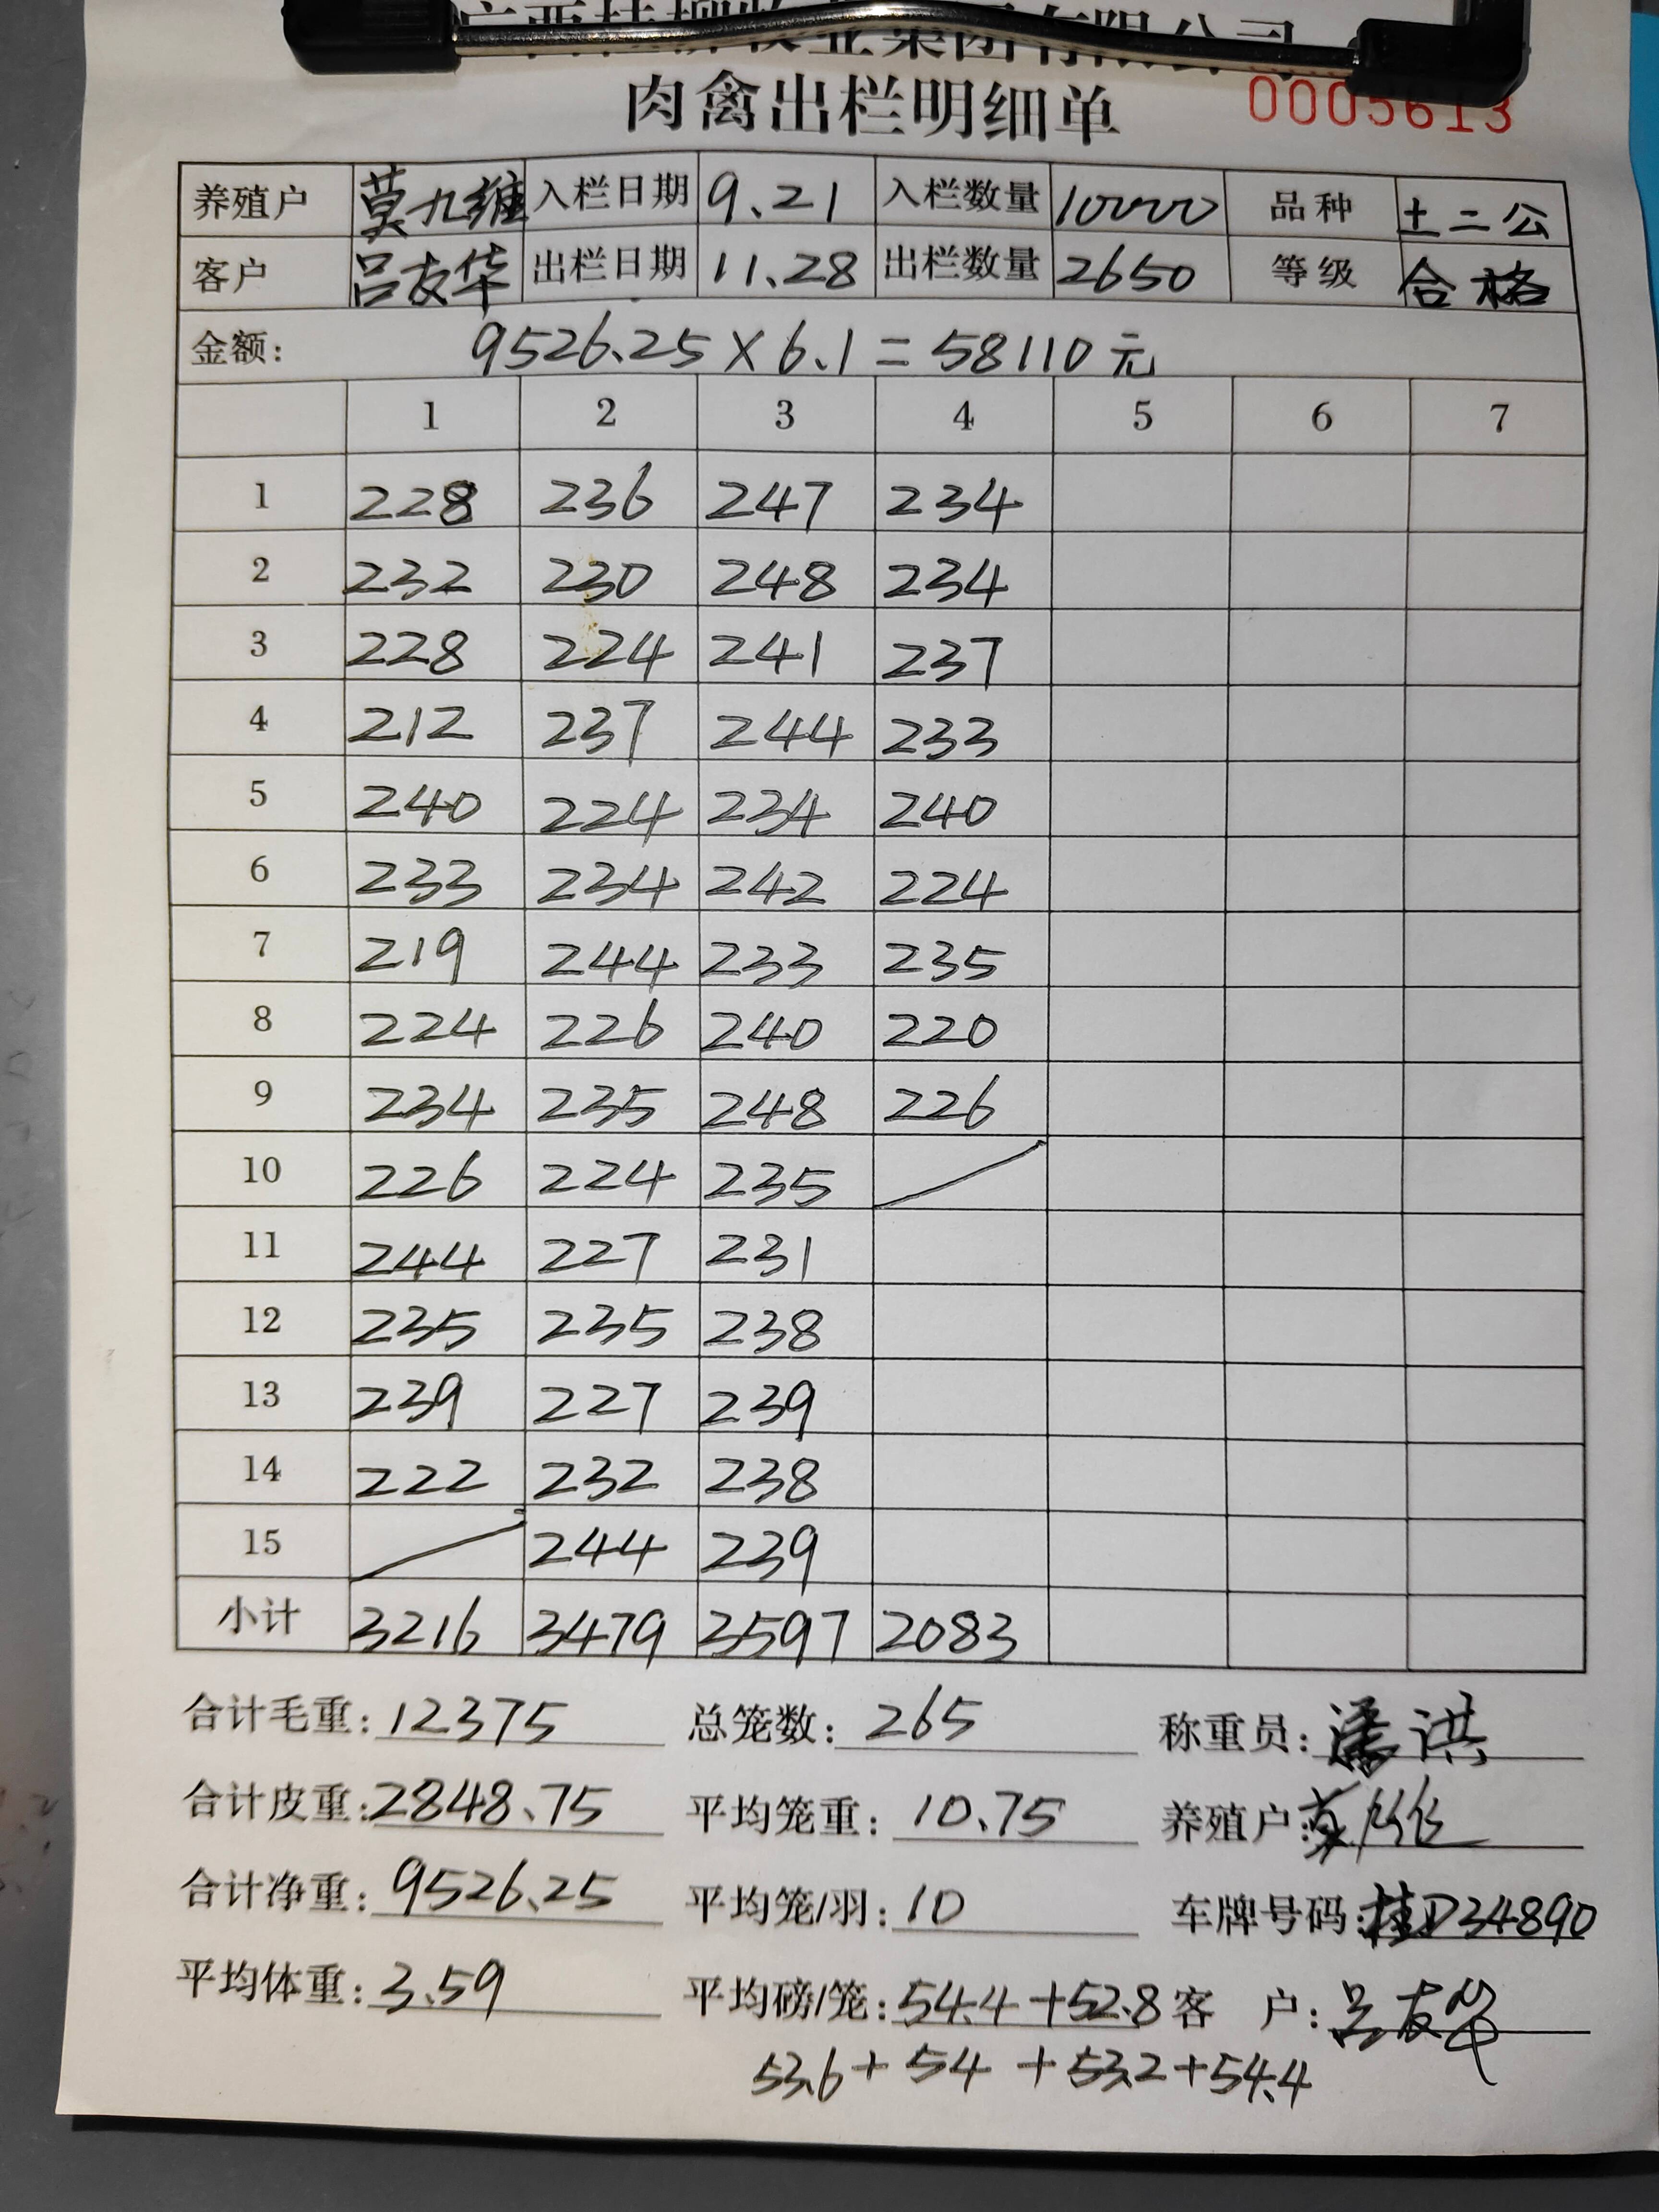 牧业集团有限公司
肉禽出栏明细单 0005613
养殖户 莫九维 入栏日期 9.21 入栏数量 10000 品种 土二公
客户 吕友华 出栏日期 11.28 出栏数量 2650 等级 合格
金额: 9526.25×6.1=58110元
1 2 3 4 5 6 7
1 228 236 247 234
2 232 230 248 234
3 228 224 241 237
4 212 237 244 233
5 240 224 234 240
6 233 234 242 224
7 219 244 233 235
8 224 226 240 220
9 234 235 248 226
10 226 224 235
11 244 227 231
12 235 235 238
13 239 227 239
14 222 232 238
15 244 239
小计 3216 3479 3597 2083
合计毛重: 12375 总笼数: 265 称重员: 潘洪
合计皮重: 2848.75 平均笼重: 10.75 养殖户:
合计净重: 9526.25 平均笼/羽: 10 车牌号码: 桂D34890
平均体重: 3.59 平均磅/笼: 54.4+52.8 客 户: 吕友华
53.6+54+53.2+54.4